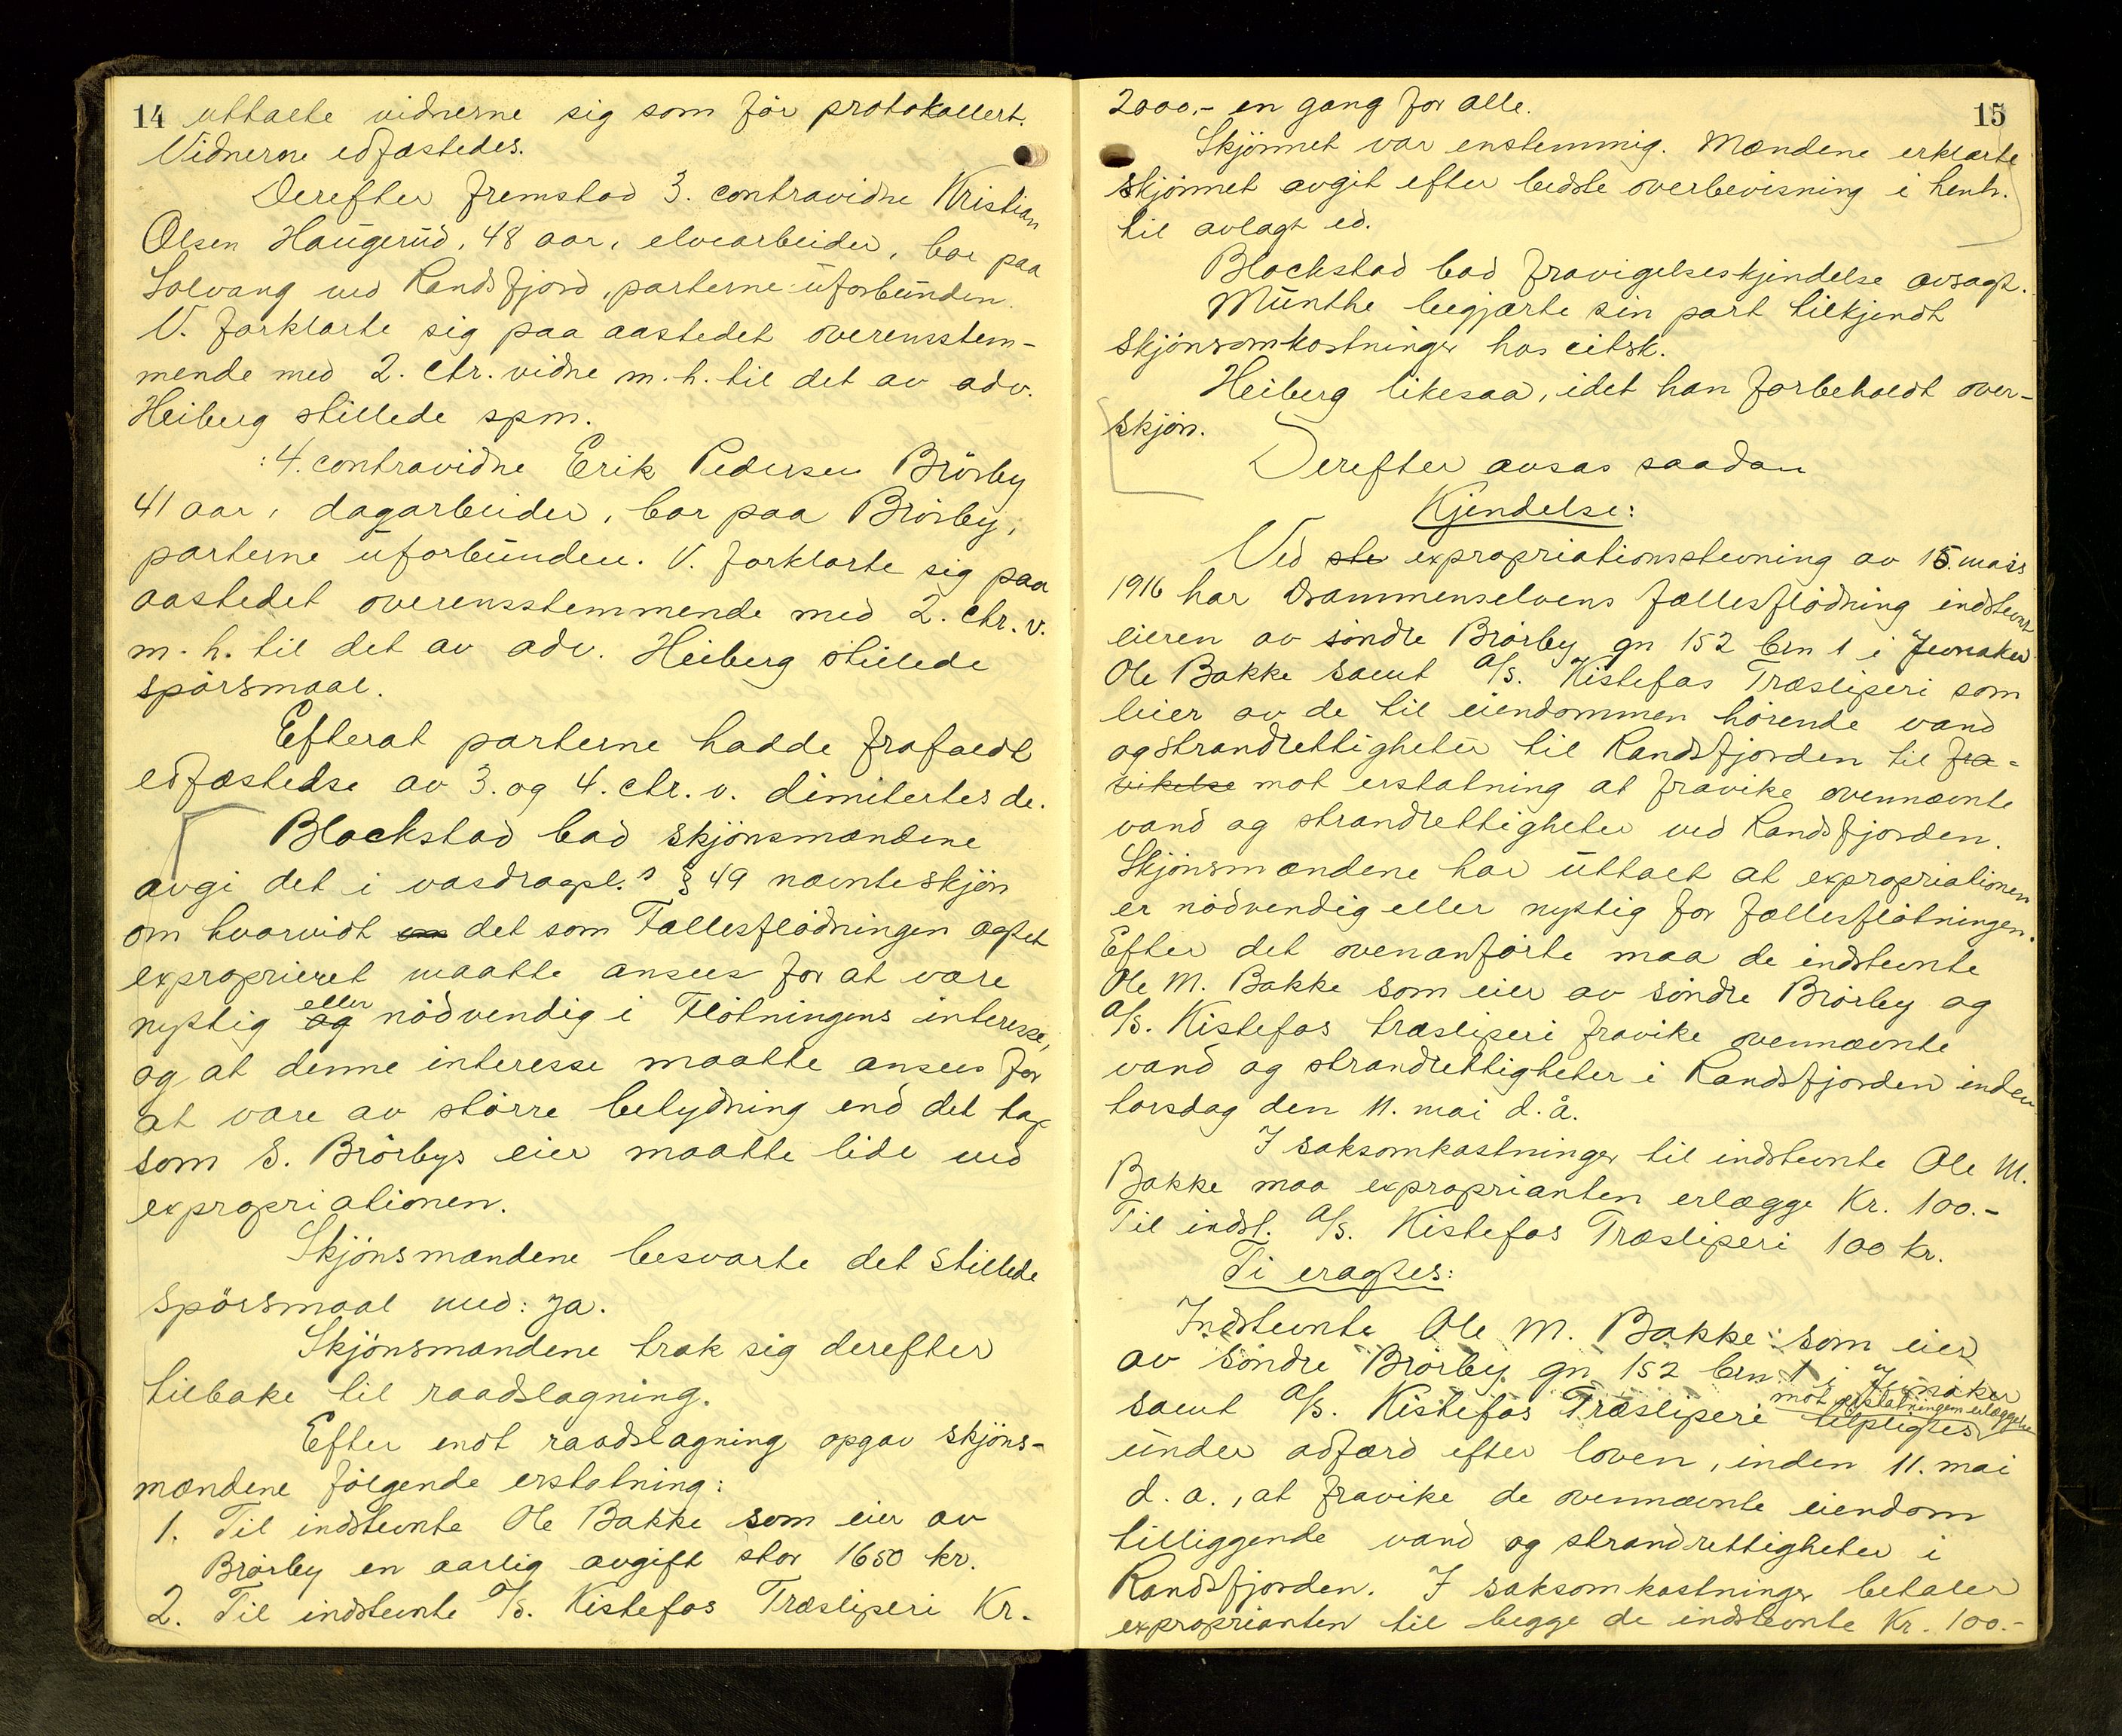 14 uttalte vidnerne sig som før protokollert.
Vidnerne edfæstedes.
Derefter fremstod 3. contravidne Kristian
Olsen Haugerud, 48 aar, elvearbeider, bor paa
Solvang ved Randsfjord, parterne uforbunden.
V. forklarte sig paa aastedet overensstem-
mende med 2. ctr. vidne m. h. til det av adv.
Heiberg stillede spm.
: 4. contravidne Erik Pedersen Brörby
41 aar, dagarbeider, bor paa Brörby,
parterne uforbunden. V. forklarte sig paa
aastedet overensstemmende med 2. ctr. v.
m. h. til det av adv. Heiberg stillede
spörsmaal.
Efterat parterne hadde frafaldt
edfæstelse av 3. og 4. ctr. v. dimitertes de.
Blackstad bad skjönsmændene
avgi det i vasdragsl.s § 49 nævnte skjön
om hvorvidt om det som Fællesflödningen agtet
exproprieret maatte ansees for at være
nyttig og eller nödvendig i Flötningens interesse,
og at denne interesse maatte ansees for
at være av större betydning end det tap
som S. Brörbys eier maatte lide ved
expropriationen.
Skjönsmændene besvarte det stillede
spörsmaal med: ja.
Skjönsmændene trak sig derefter
tilbake til raadslagning.
Efter endt raadslagning opgav skjöns-
mændene fölgende erstatning:
1. Til indstevnte Ole Bakke som eier av
Brörby en aarlig avgift stor 1650 kr.
2. Til indstevnte A/S. Kistefos Træsliperi Kr.
15
2000,- en gang for alle.
Skjönnet var enstemmig. Mændene erklærte
skjönnet avgit efter bedste overbevisning i henh.
til avlagt ed.
Blackstad bad fravigelseskjendelse avsagt.
Münthe begjærte sin part tilkjendt
skjönsomkostninger hos citsk.
Heiberg likesaa, idet han forbeholdt over-
skjön.
Derefter avsas saadan
Kjendelse:
Ved ste expropriationsstevning av 15. mars
1916 har Drammenselvens fællesflödning indstevnt
eieren av söndre Brörby gn 152 brn 1 i Jevnaker
Ole Bakke samt A/S. Kistefos Træsliperi som
leier av de til eiendommen hörende vand
og strandrettigheter til Randsfjorden til fra-
vikelse mot erstatning at fravike ovennævnte
vand og strandrettigheter ved Randsfjorden.
Skjönsmændene har uttalt at expropriationen
er nödvendig eller nyttig for fællesflötningen.
Efter det ovenanförte maa de indstevnte
Ole M. Bakke som eier av söndre Brörby og
A/S. Kistefos træsliperi fravike ovennævnte
vand og strandrettigheter i Randsfjorden inden
torsdag den 11. mai d. å.
I saksomkostninger til indstevnte Ole M.
Bakke maa exproprianten erlægge Kr. 100.-
Til indst. A/S. Kistefos Træsliperi 100 kr.
Ti eragtes:
Indstevnte Ole M. Bakke som eier
av söndre Brörby gn 152 brn. 1 i Jevnaker
mot erstatningens erlæggelse
samt A/S. Kistefos Træsliperi tilpligtes
under adfærd efter loven, inden 11. mai
d. a., at fravike de ovennævnte eiendom
tilliggende vand og strandrettigheter i
Randsfjorden. I saksomkostninger betaler
exproprianten til begge de indstevnte Kr. 100.-